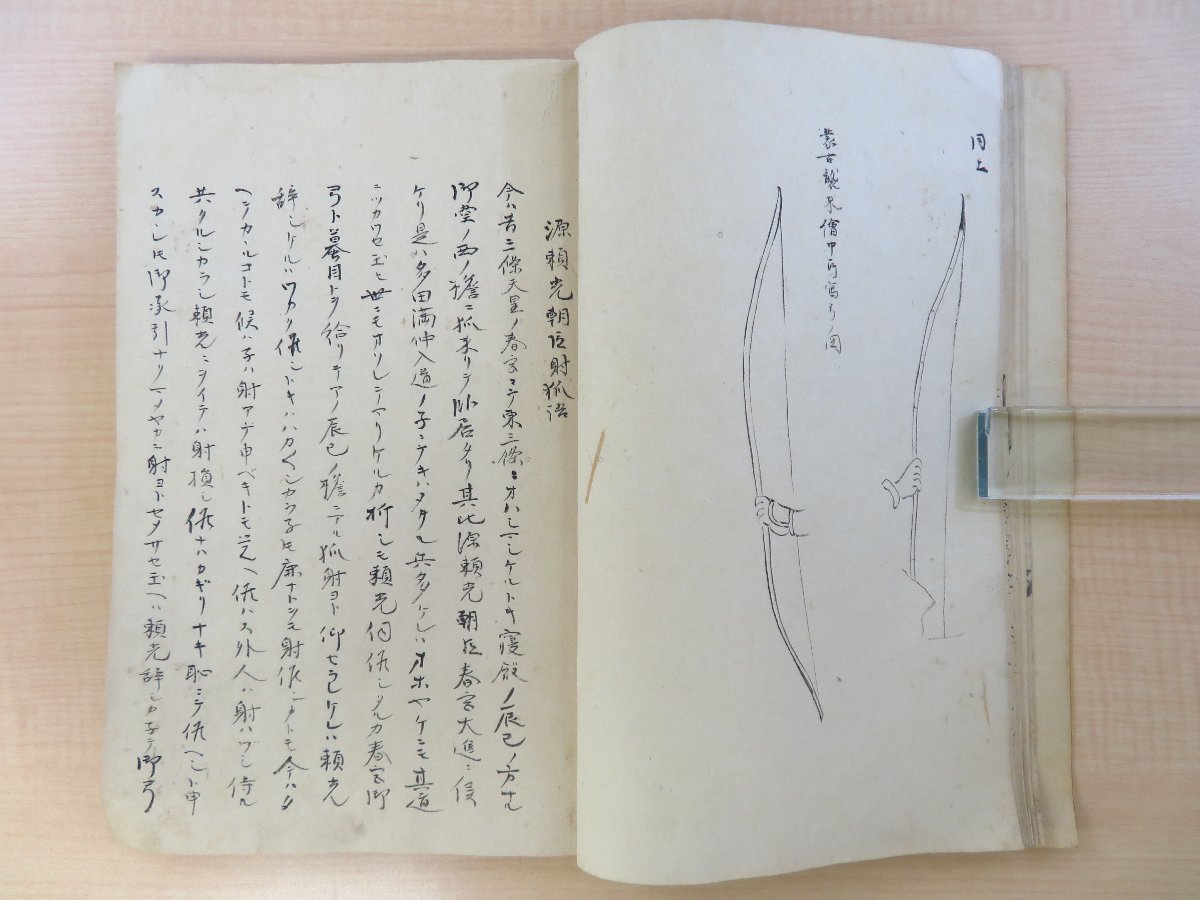 同上
蒙古襲来僧巾所写弓ノ図
源頼光朝臣射狐語
今ハ昔三條天皇ノ春宮ニテ東三條ニオハシマシケルトキ寝殿ノ辰巳ノ方ナル
御堂ノ西ノ檐ニ狐来リテ臥居タリ其比源頼光朝臣春宮大進ニ候
ケリ是ハ多田満仲入道ノ子ニテキハメタル兵ナケレハオホヤケニモ其道
ニツカワセ玉ヒ世ニモオソレラレテアリケルカ折シモ頼光伺候シタルカ春宮御
弓ト蟇目トヲ給リテアノ辰巳ノ檐ニアル狐射ヨト仰セラレケレハ頼光
辞シケルハワカク候シトキハハカ〱シカラ子ㇳモ鹿ナトヲモ射候シカトモ今ハタ
ヘテカヽルコトモ候ハ子ハ射アテ申ベキトモ覚ヘ候ハス外人ハ射ハツシ侍ル
共クルシカラシ頼光ニヲイテハ射損シ候ナハカギリナキ恥ニテ候ヘシト申
スカレㇳモ御承引ナリマメヤカニ射ヨトセメサセ玉ヘハ頼光辞シカ子テ御弓